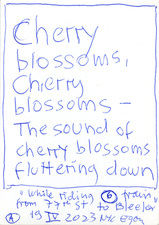 Cherry
blossoms,
Cherry
blossoms –
The sound of
cherry blossoms
fluttering down
"while riding 6 train"
from 77rd st to Bleeker
19 IV 2023 NYC Egon